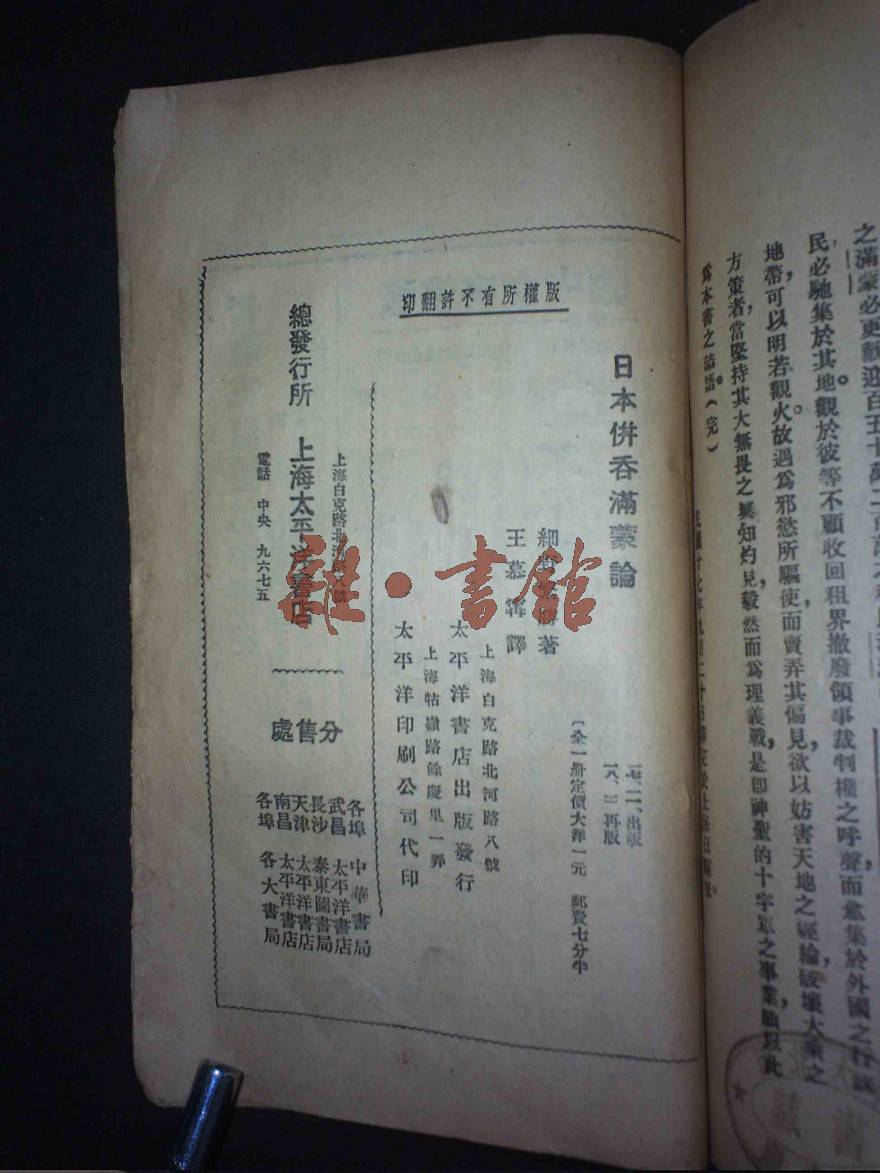 之滿蒙必更歡迎百五十萬二百萬之移民
民必馳集於其地觀於彼等不顧收回租界撤廢領事裁判權之呼聲而愈集於外國之行政
地帶可以明若觀火故遇爲邪慾所驅使而賣弄其偏見欲以妨害天地之經綸破壞大業之
方策者，當堅持其大無畏之眞知灼見毅然而爲理義戰，是卽神聖的十字軍之事業願以此
爲本書之結語。（完）
版權所有不許翻印
日本併吞滿蒙論
一七、二一、出版
一八、二再版
〔全一册定價大洋一元 郵費七分半
細野 著
王慕寗譯
上海白克路北河路八號
太平洋書店出版發行
上海牯嶺路餘慶里一弄
太平洋印刷公司代印
上海白克路北河 八號
總發行所 上海太平洋書店
電話 中央 九六七五
分售處
各埠 中華書局
武昌 太平洋書店
長沙 泰東圖書局
天津 太平洋書店
南昌 太平洋書店
各埠 各大書局
雜·書館
書
藏